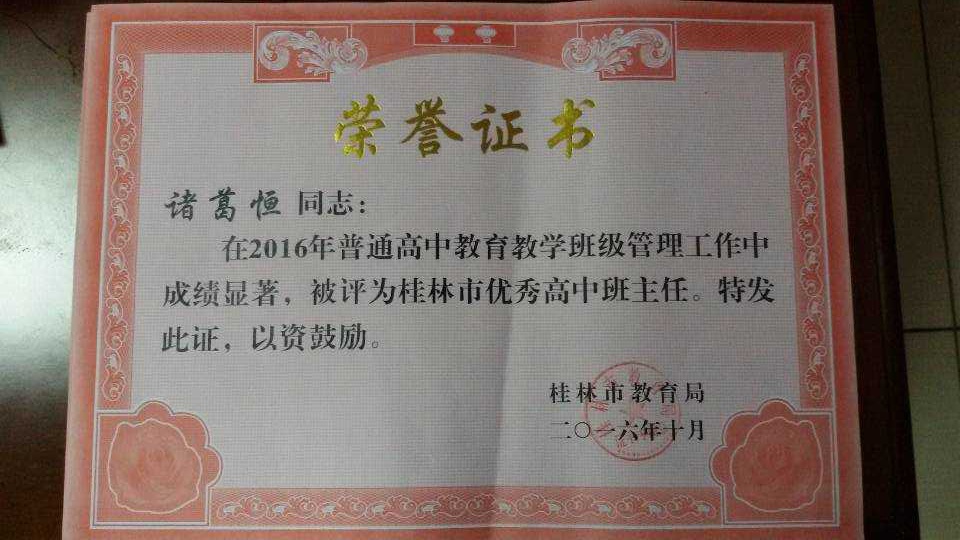 荣誉证书
诸葛恒 同志：
在2016年普通高中教育教学班级管理工作中
成绩显著，被评为桂林市优秀高中班主任。特发
此证，以资鼓励。
桂林市教育局
二〇一六年十月